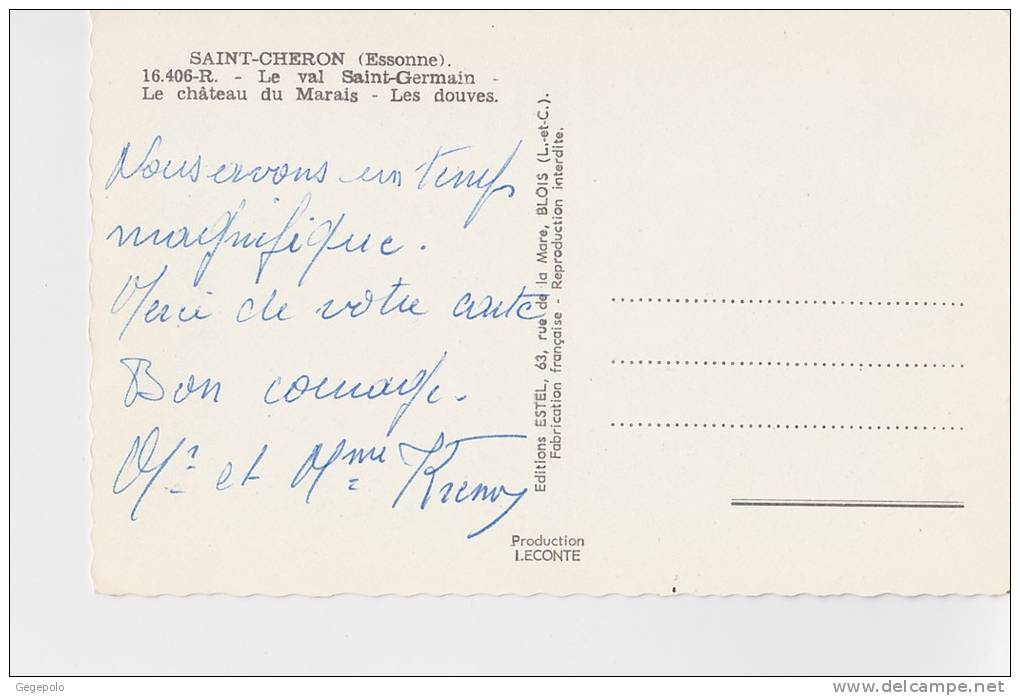 SAINT-CHERON (Essonne).
16.406-R. - Le val Saint-Germain -
Le château du Marais - Les douves.
Nous avons un temps
magnifique.
Merci de votre carte
Bon courage.
Mr et Mme
Editions ESTEL, 63, rue de la Mare, BLOIS (L.-et-C.).
Fabrication française - Reproduction interdite.
Production
LECONTE
Gegepolo
www.delcampe.net